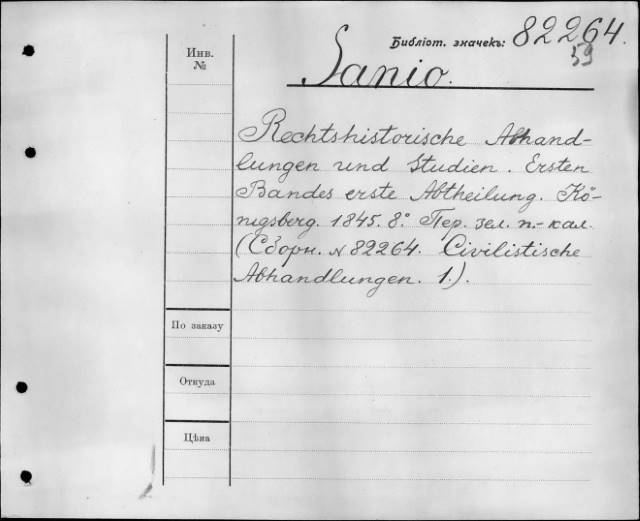 Библіот. значекъ: 82264.
59
Инв.
№
Sanio.
Rechtshistorische Abhand-
lungen und Studien. Ersten
Bandes erste Abtheilung. Kö-
nigsberg. 1845. 8° Пер. зел. п.-кал.
(Сборн. № 82264. Civilistische
Abhandlungen. 1.).
По заказу
Откуда
Цѣна